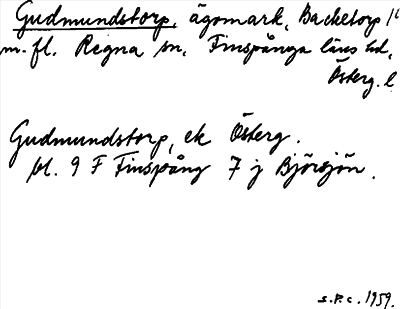 Gudmundstorp, ägomark, Backetorp 1/1
m.fl. Regna sn, Finspånga läns hd,
Österg. l.
Gudmundstorp, ek Österg.
bl. 9 F Finspång 7 j Björsjön.
S.P.C. 1959.